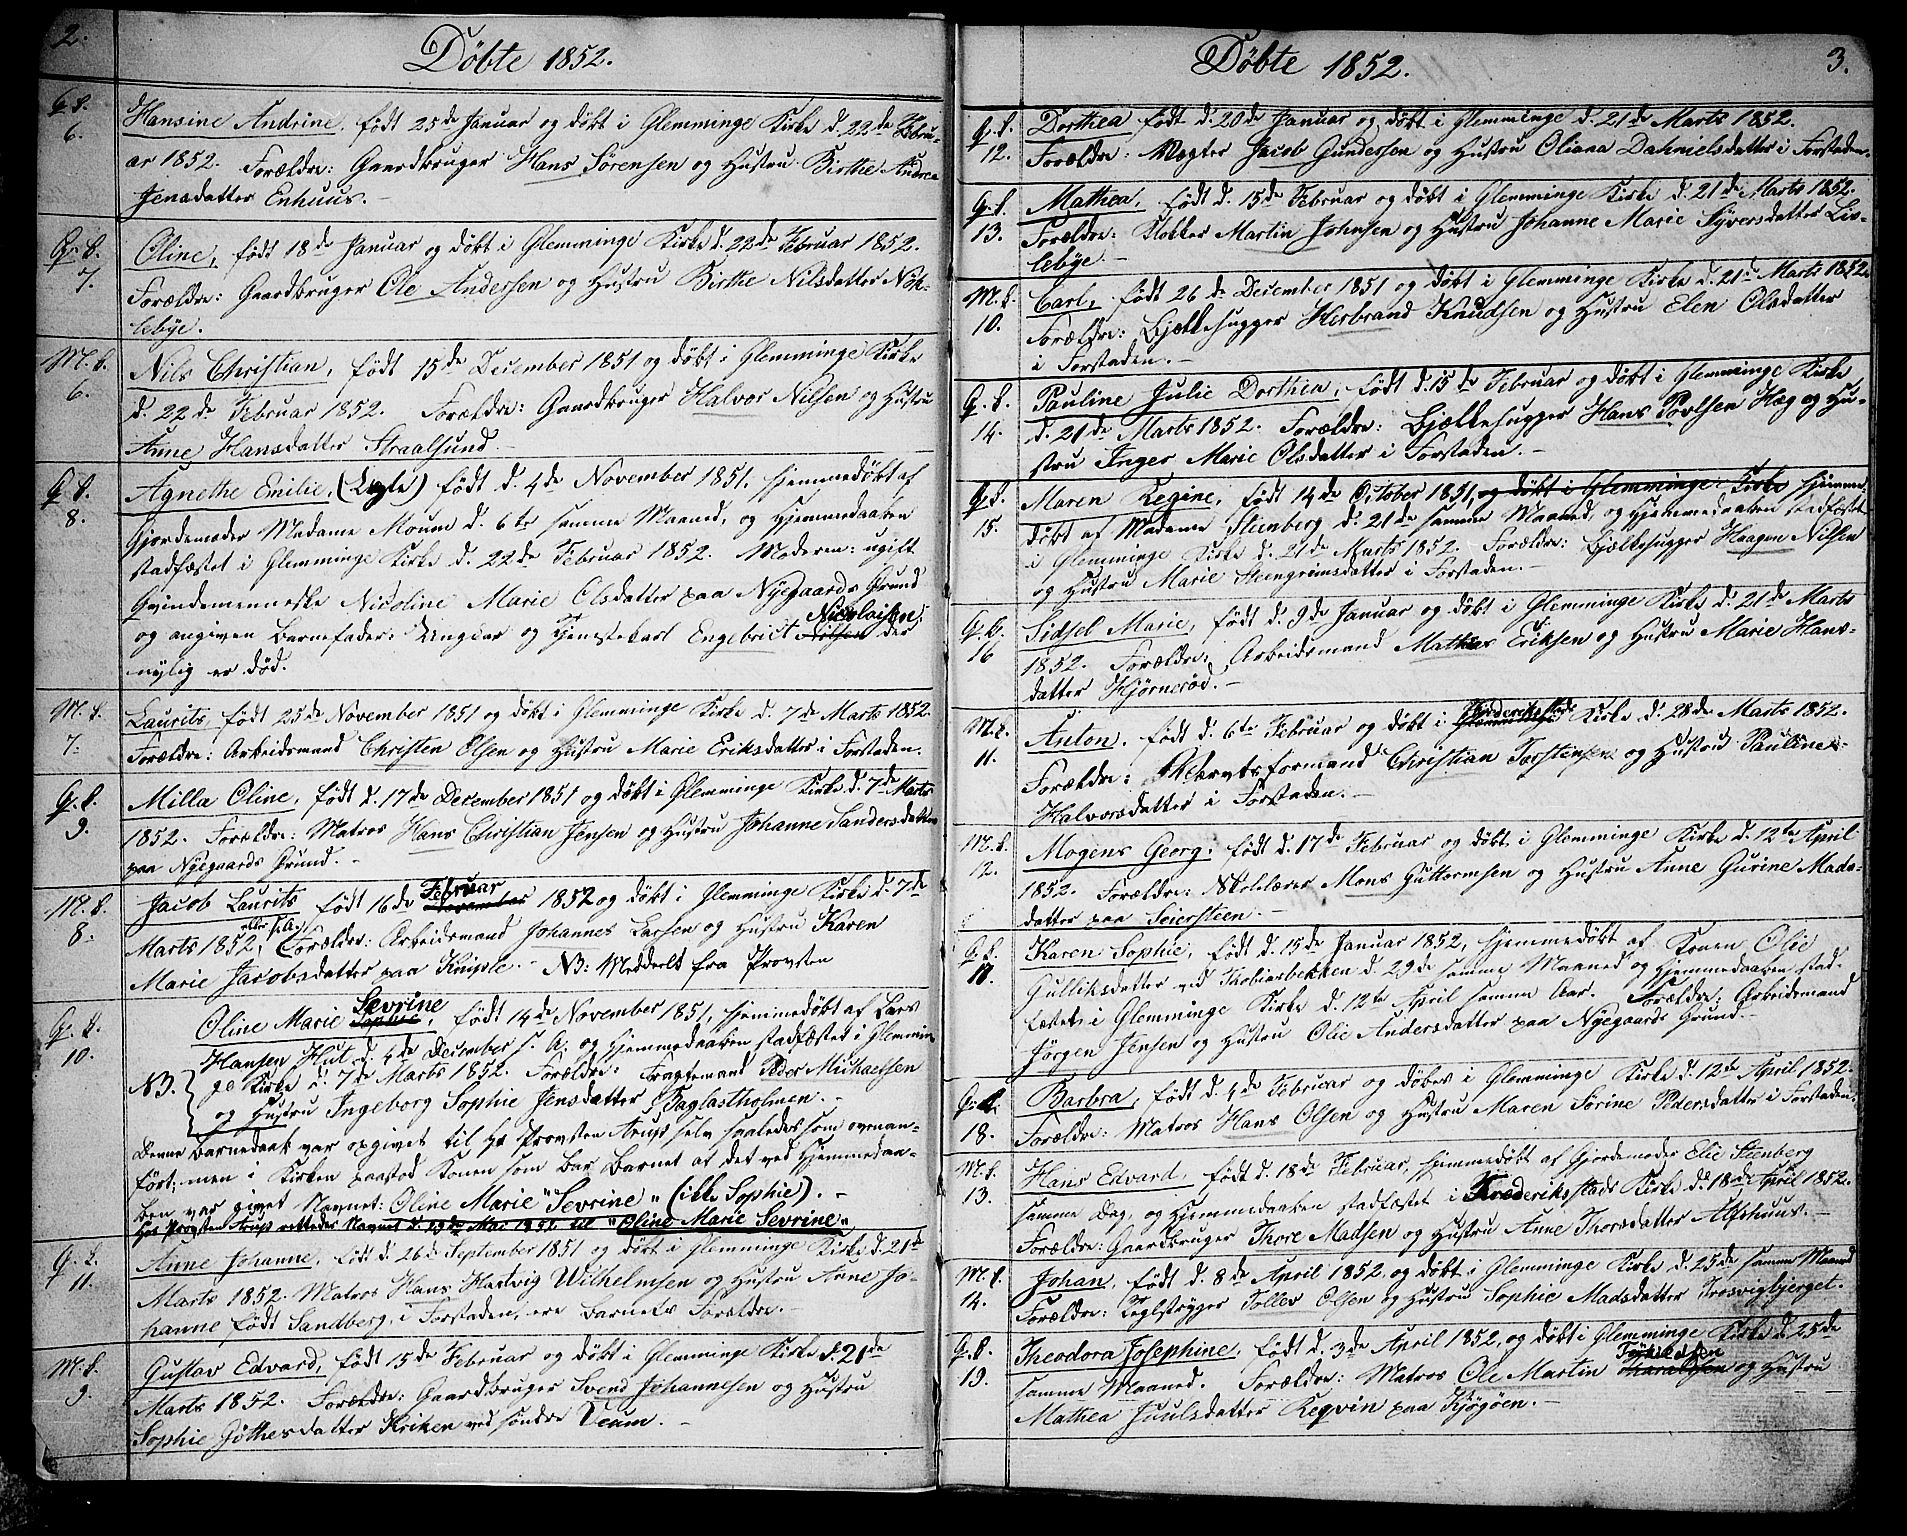 2.
Döbte 1852.
G. b. 6. Hansine Andrine, født 25de Januar og døbt i Glemminge Kirke d. 22de Febru-
ar 1852. Forældre: Gaardbruger Hans Sørensen og Hustru Birthe Andrea
Jensdatter Enhuus.-
G. b. 7. Oline, født 18de Januar og døbt i Glemminge Kirke d. 22de Februar 1852.
Forældre: Gaardbruger Ole Andersen og Hustru Birthe Nilsdatter Nök-
lebye.
M. b. 6. Nils Christian, født 15de December 1851 og døbt i Glemminge Kirke
d. 22de Februar 1852. Forældre: Gaardbruger Halvor Nilsen og Hustru
Anne Hansdatter Straalsund.-
G. b. 8. Agnethe Emilie, (Uægte) født d. 4de November 1851, hjemmedøbt af
Gjordemoder Madame Moum d. 6te samme Maaned, og Hjemmedaaben
stadfæstet i Glemminge Kirke d. 22de Februar 1852. Moderen: ugift
Qvindemenneske Nicoline Marie Olsdatter paa Nyegaards Grund
og angiven Barnefader: Ungkar og Tjenestekarl Engebrict Nilsen Nicolaisen, der
nylig er død.
M. b. 7. Laurits, født 25de November 1851 og døbt i Glemminge Kirke d. 7de Marts 1852.
Forældre: Arbeidsmand Christen Olsen og Hustru Marie Eriksdatter i Forstaden.
G. b. 9. Milla Oline, født d. 17de December 1851 og døbt i Glemminge Kirke d. 7de Marts
1852. Forældre: Matros Hans Christian Jensen og Hustru Johanne Sandersdatter
paa Nyegaards Grund.-
M. b. 8. Jacob Laurits født 16de November Februar 1852 og døbt i Glemminge Kirke d. 7de
Marts 1852, Forældre: Arbeidsmand Johannes Larsen og Hustru Karen
Marie Jacobsdatter paa Kniple.- NB: Meddeelt fra Provsten
G. b. 10. Oline Marie Sophie Sevrine, født 14de November 1851, hjemmedøbt af Lars
Hansen Hut d. 4de December s. A. og Hjemmedaaben stadfæstet i Glemmin-
NB. ge Kirke d. 7de Marts 1852. Forældre: Fragtemand Peder Michaelsen
og Hustru Ingeborg Sophie Jensdatter, Baglastholmen.-
Denne Barnedaab var opgivet til Hr Provsten Arup selv saaledes som ovenan-
ført; men i Kirken paastod Konen som bar Barnet at det ved Hjemmedaa-
ben var givet Navnet: Oline Marie "Sevrine" (ikke Sophie).-
Hos Provsten Arup rettedes Navnet d. 29de Mai 1852 til "Oline Marie Sevrine"
G. b. 11. Anne Johanne, født d. 26de September 1851 og døbt i Glemminge Kirke d. 21de
Marts 1852. Matros Hans Hartvig Wilhelmsen og Hustru Anne Jo-
hanne født Sandberg, i Forstaden, ere Barnets Forældre.-
M. b. 9. Gustav Edvard, født 15de Februar og døbt i Glemminge Kirke d. 21de
Marts 1852. Forældre: Gaardbruger Svend Johannesen og Hustru
Sophie Jøthesdatter Kriken ved søndre Veum.-
3.
Döbte 1852.
G. b. 12. Dorthea født d. 20de Januar og døbt i Glemminge d. 21de Marts 1852.
Forældre: Vægter Jacob Gundersen og Hustru Oliana Dahnielsdatter i Forstaden.
G. b. 13. Mathea, født d. 15de Februar og døbt i Glemminge Kirke d. 21de Marts 1852.
Forældre: Klokker Martin Johnsen og Hustru Johanne Marie Syversdatter Lis-
lebye.-
M. b. 10. Carl, født 26de December 1851 og døbt i Glemminge Kirke d. 21de Marts 1852
Forældre: Bjelkehugger Herbrand Knudsen og Hustru Elen Olsdatter
i Forstaden.-
G. b. 14. Pauline Julie Dorthea, født d. 15de Februar og døbt i Glemminge Kirke
d. 21de Marts 1852. Forældre: Bjelkehugger Hans Povlsen Hæg og Hu-
stru Inger Marie Olsdatter i Forstaden.-
G. b. 15. Maren Regine, født 14de October 1851, og døbt i Glemminge Kirke hjemme-
døbt af Madame Stenberg d. 21de samme Maaned, og Hjemmedaaben stadfæstet
i Glemminge Kirke d. 21de Marts 1852. Forældre: Bjelkehugger Haagen Nilsen
og Hustru Marie Steengrimsdatter i Forstaden.-
G. b. 16 Sidsel Marie, født d. 9de Januar og døbt i Glemminge Kirke d. 21de Marts
1852. Forældre: Arbeidsmand Mathias Eriksen og Hustru Marie Hans-
datter Hjørnerød.-
M. b. 11. Anton, født d. 6te Februar og døbt i Glemminge Frederiksstads Kirke d. 28de Marts 1852.
Forældre: Reheubsformand Christian Torstensen og Hustru Pauline
Halvorsdatter i Forstaden.-
M. b. 12. Mogens Georg, født d. 17de Februar og døbt i Glemminge Kirke d. 12te April
1852. Forældre: Skolelærer Mons Guttormsen og Hustru Anne Gurine Mads-
datter paa Seiersteen.-
G. b. 17. Karen Sophie, født d. 15de Januar 1852, hjemmedøbt af Konen Olie
Gulliksdatter ved Thobiasbekken d. 29de samme Maaned og Hjemmedaaben stad-
fæstet i Glemminge Kirke d. 12te April samme Aar. Forældre: Arbeidsmand
Jörgen Jensen og Hustru Olie Andersdatter paa Nyegaards Grund.-
G. b. 18. Barbra, født d. 4de Februar og døbes i Glemminge Kirke d. 12te April 1852.
Forældre: Matros Hans Olsen og Hustru Maren Sörine Pedersdatter i Forstaden.
M. b. 13. Hans Edvard, født d. 18de Februar, hjemmedøbt af Gjordemoder Elie Stenberg
samme Dag, og Hjemmedaaben stadfæstet i Frederiksstads Kirke d. 18de April 1852.
Forældre: Gaardbruger Thore Madsen og Hustru Anne Thorsdatter Alshuus.-
M. b. 14. Johan, født d. 8de April 1852 og døbt i Glemminge Kirke d. 25de samme Maaned
Forældre: Teglstryger Tollev Olsen og Hustru Sophie Madsdatter Trosvigbjerget.
G. b. 19. Theodora Josephine, født d. 3de April 1852, og døbt i Glemminge Kirke d. 25de
samme Maaned. Forældre: Matros Ole Martin og Hustru
Mathea Juulsdatter Reqvin paa Kjøgøen.-